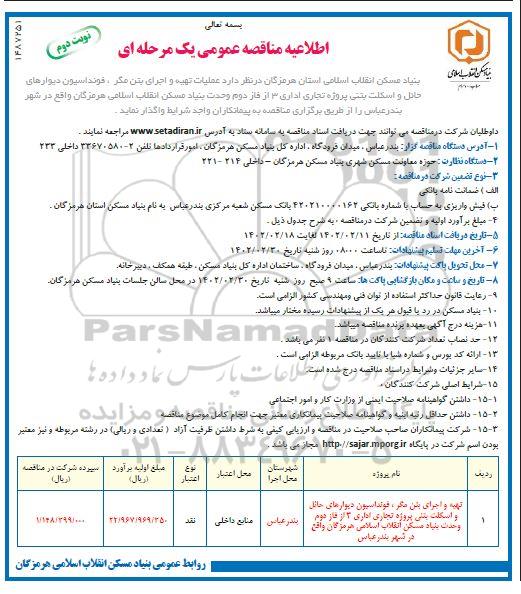 بسمه تعالی
۱۴۸۷۲۵۱
نوبت دوم
اطلاعیه مناقصه عمومی یک مرحله ای
بنیاد مسکن انقلاب اسلامی
بنیاد مسکن انقلاب اسلامی استان هرمزگان درنظر دارد عملیات تهیه و اجرای بتن مگر ، فونداسیون دیوارهای
حائل و اسکلت بتنی پروژه تجاری اداری ۳ از فاز دوم وحدت بنیاد مسکن انقلاب اسلامی هرمزگان واقع در شهر
بندرعباس را از طریق برگزاری مناقصه به پیمانکاران واجد شرایط واگذار نماید .
داوطلبان شرکت درمناقصه می توانند جهت دریافت اسناد مناقصه به سامانه ستاد به آدرس www.setadiran.ir مراجعه نمایند .
۱-آدرس دستگاه مناقصه گزار: بندرعباس ، میدان فرودگاه ، اداره کل بنیاد مسکن هرمزگان ، امورقراردادها تلفن ۲-۳۳۶۷۰۵۸۰ داخلی ۲۳۳
۲-دستگاه نظارت : حوزه معاونت مسکن شهری بنیاد مسکن هرمزگان – داخلی ۲۱۴ -۲۲۱
۳-نوع تضمین شرکت درمناقصه :
الف ) ضمانت نامه بانکی
ب) فیش واریزی به حساب با شماره بانکی ۴۲۰۲۱۰۰۰۰۱۶۲ بانک مسکن شعبه مرکزی بندرعباس به نام بنیاد مسکن استان هرمزگان .
۴- مبلغ برآورد اولیه و تضمین شرکت درمناقصه ، به شرح جدول ذیل .
۵-تاریخ دریافت اسناد مناقصه: از تاریخ ۱۴۰۲/۰۲/۱۱ لغایت ۱۴۰۲/۰۲/۱۸
۶- آخرین مهلت تسلیم پیشنهادات: تاساعت ۰۸:۰۰ روز شنبه تاریخ ۱۴۰۲/۰۲/۳۰
۷- محل تحویل پاکت پیشنهادات: بندرعباس ، میدان فرودگاه ، ساختمان اداره کل بنیاد مسکن ، طبقه همکف ، دبیرخانه.
۸- تاریخ و ساعت و مکان بازگشایی پاکت ها: ساعت ۹ صبح روز شنبه تاریخ ۱۴۰۲/۰۲/۳۰ در محل سالن جلسات بنیاد مسکن هرمزگان.
۹- رعایت قانون حداکثر استفاده از توان فنی ومهندسی کشور الزامی است.
۱۰- بنیاد مسکن در رد یا قبول هر یک از پیشنهادات رسیده مختار میباشد.
۱۱-هزینه درج آگهی بعهده برنده مناقصه میباشد.
۱۲- حد نصاب تعداد شرکت کنندگان در مناقصه ۱ نفر می باشد .
۱۳- ارائه کد بورس و شماره شبا با تایید بانک مربوطه الزامی است .
۱۴-سایر جزئیات وشرایط دراسناد مناقصه درج شده است.
۱۵-شرایط اصلی شرکت کنندگان :
۱-۱۵- داشتن گواهینامه صلاحیت ایمنی از وزارت کار و امور اجتماعی
۲-۱۵- داشتن حداقل رتبه ابنیه و گواهینامه صلاحیت پیمانکاری معتبر جهت انجام کامل موضوع مناقصه
۳-۱۵- شرکت پیمانکاران صاحب صلاحیت در مناقصه و ارزیابی کیفی به شرط داشتن ظرفیت آزاد ( تعدادی و ریالی) در رشته مربوطه و نیز معتبر
بودن اسم شرکت در پایگاه http://sajar.mporg.ir مجاز می باشد .
ParsNamadData
پارس نماد داده ها
۰۲۱-۸۸۳۴۹۶۷۰-۵
ردیف نام پروژه شهرستان محل اجرا محل اعتبار نوع اعتبار مبلغ اولیه برآورد (ریال) سپرده شرکت در مناقصه (ریال)
۱ تهیه و اجرای بتن مگر ، فونداسیون دیوارهای حائل و اسکلت بتنی پروژه تجاری اداری ۳ از فاز دوم وحدت بنیاد مسکن انقلاب اسلامی هرمزگان واقع در شهر بندرعباس بندرعباس منابع داخلی نقد ۲۲/۹۶۷/۹۶۹/۳۵۰ ۱/۱۴۸/۳۹۹/۰۰۰
روابط عمومی بنیاد مسکن انقلاب اسلامی هرمزگان